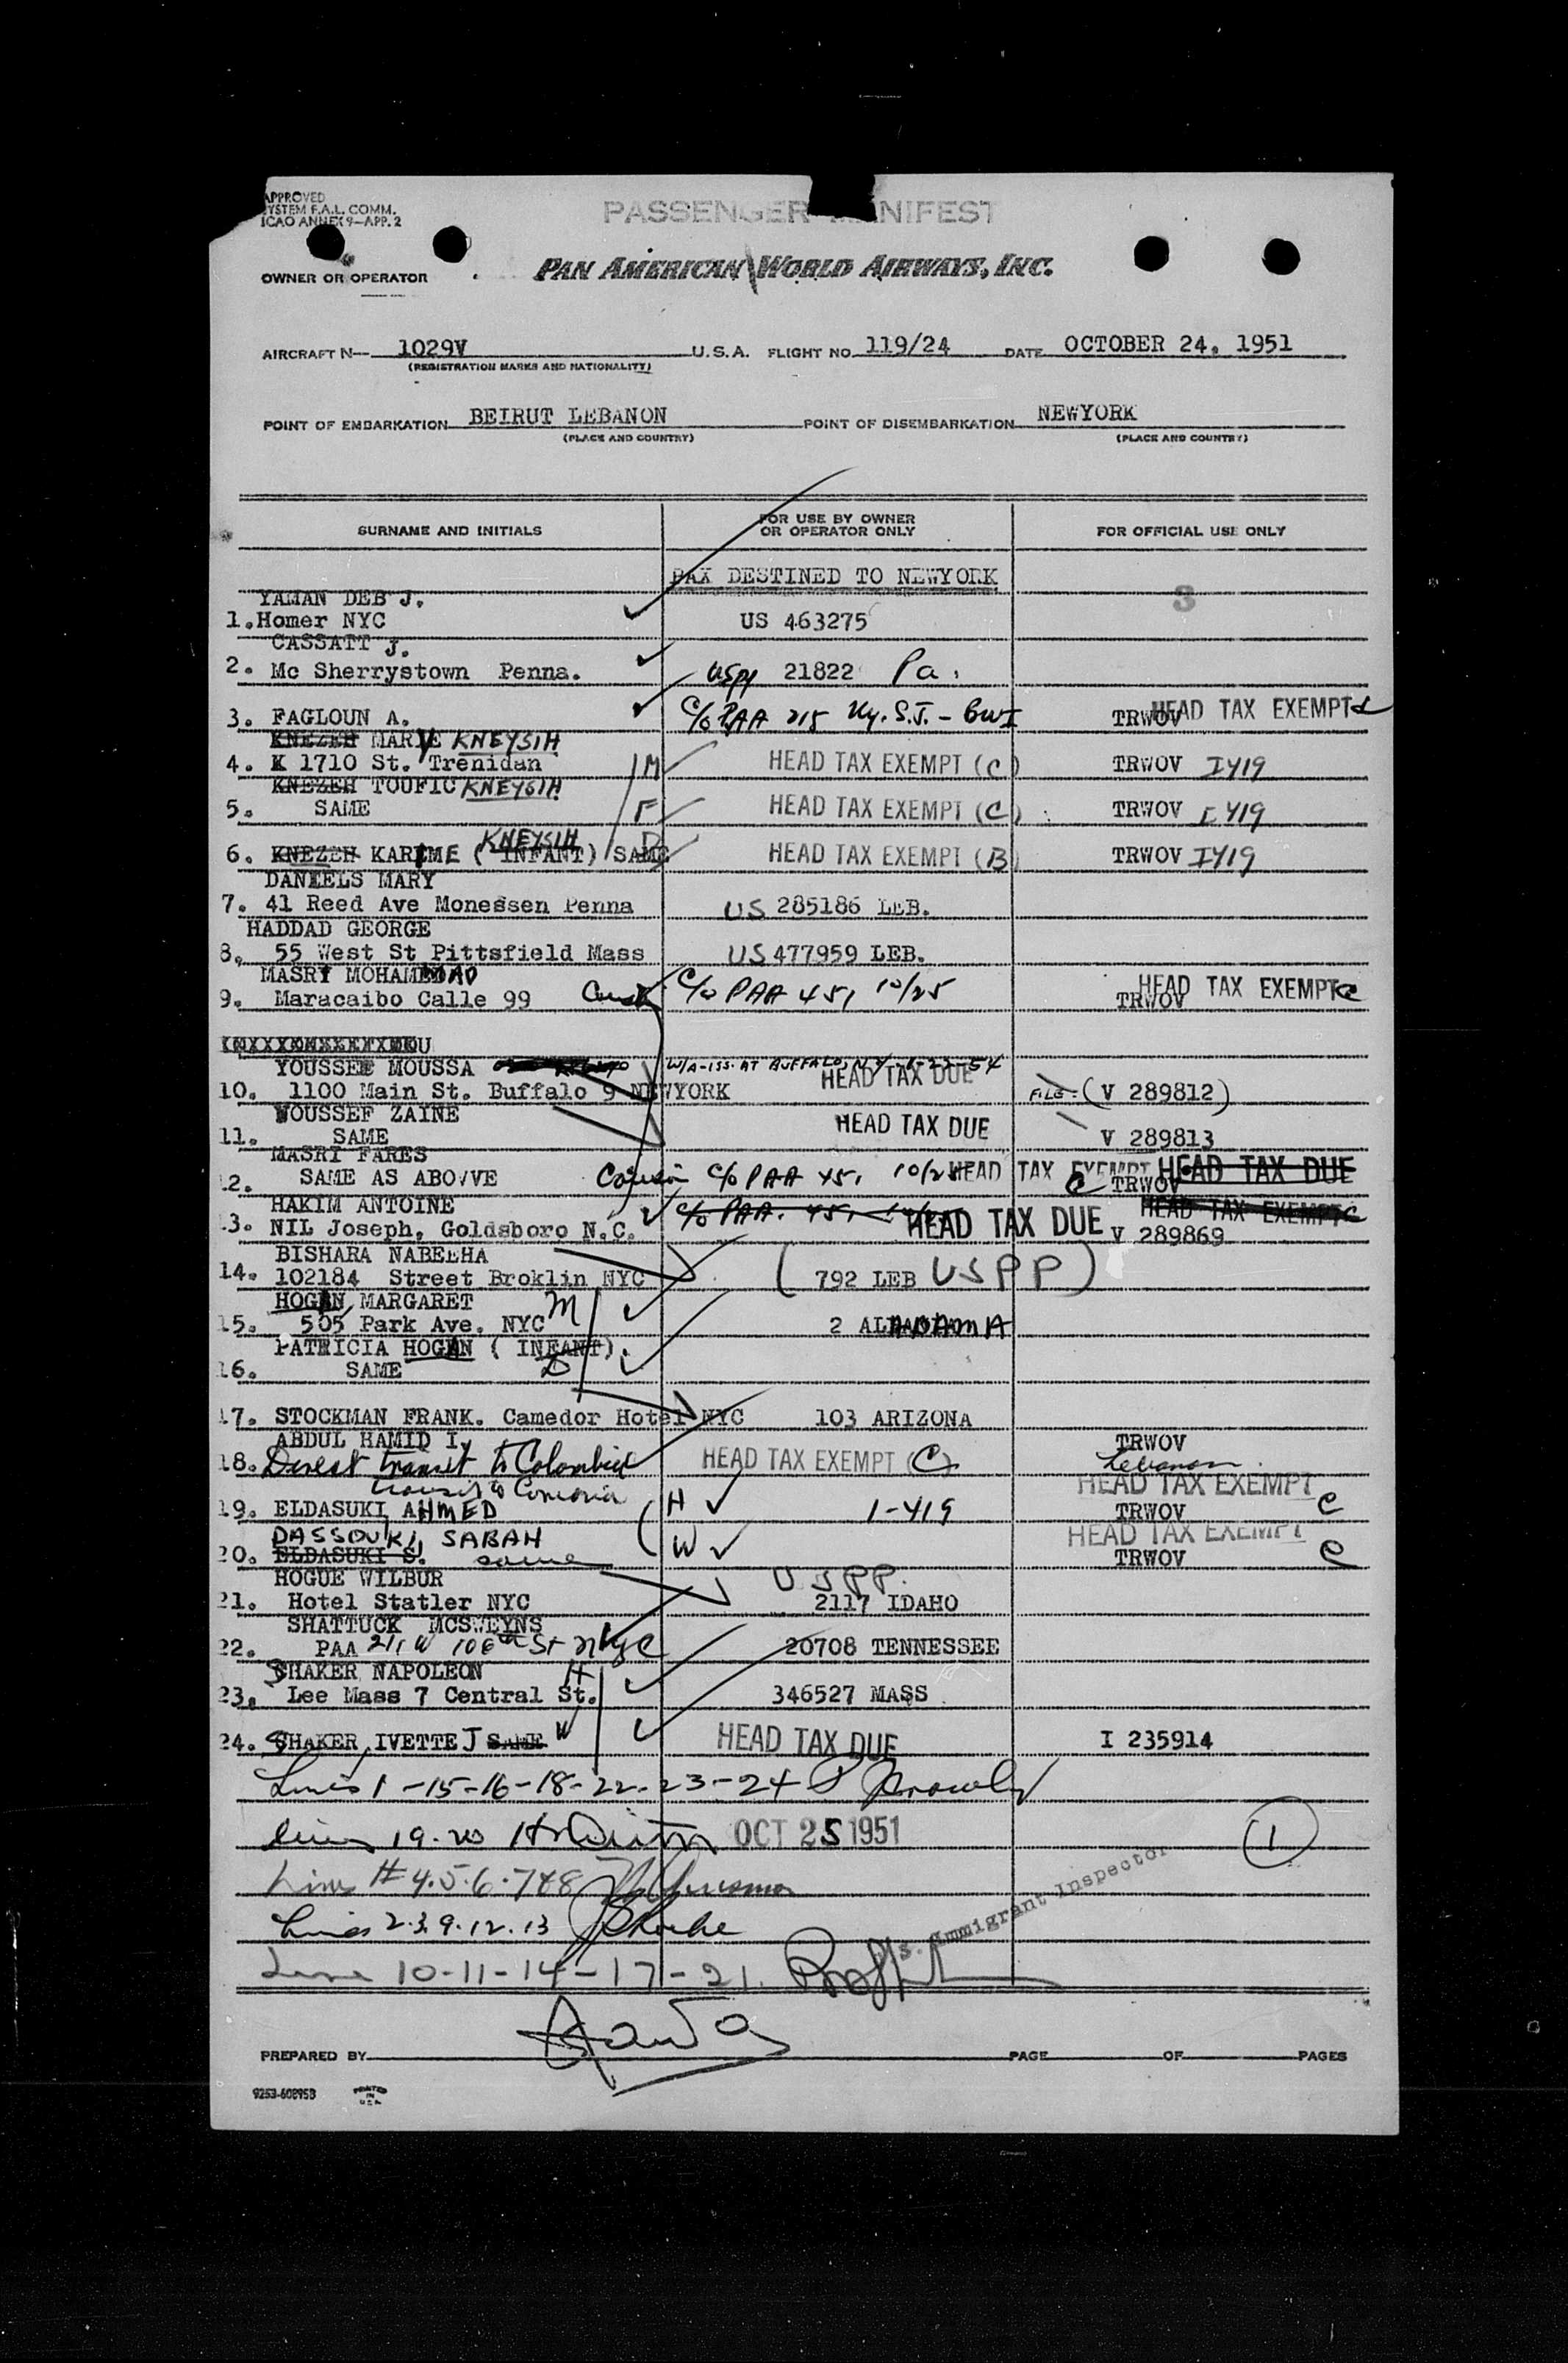 APPROVED
SYSTEM F.A.L. COMM.
ICAO ANNEX 9—APP. 2
PASSENGER MANIFEST
OWNER OR OPERATOR
PAN AMERICAN WORLD AIRWAYS, INC.
AIRCRAFT N— 1029V U.S.A. FLIGHT NO. 119/24 DATE OCTOBER 24, 1951
(REGISTRATION MARKS AND NATIONALITY)
POINT OF EMBARKATION BEIRUT LEBANON POINT OF DISEMBARKATION NEWYORK
(PLACE AND COUNTRY) (PLACE AND COUNTRY)
SURNAME AND INITIALS FOR USE BY OWNER OR OPERATOR ONLY FOR OFFICIAL USE ONLY
PAX DESTINED TO NEWYORK
3
YAMAN DEB J.
1.Homer NYC US 463275
CASSATT J.
2. Mc Sherrystown Penna. USPP 21822 Pa.
3. FAGLOUN A. C/o PAA 215 TRWOV HEAD TAX EXEMPT
KNEZEH MARY KNEYSIH
4. K 1710 St. Trenidan M HEAD TAX EXEMPT (C) TRWOV I419
KNEZEH TOUFIC KNEYSIH
5. SAME F HEAD TAX EXEMPT (C) TRWOV I419
KNEYSIH
6. KNEZEH KARIME ( INFANT) SAME D HEAD TAX EXEMPT (B) TRWOV I419
DANEELS MARY
7. 41 Reed Ave Monessen Penna US 285186 LEB.
HADDAD GEORGE
8. 55 West St Pittsfield Mass US 477959 LEB.
MASRI MOHAMMAD
9. Maracaibo Calle 99 C/o PAA 451 10/25 TRWOV HEAD TAX EXEMPT C
YOUSSEF MOUSSA W/A-ISS. AT BUFFALO, N.Y.
10. 1100 Main St. Buffalo 9 NEWYORK HEAD TAX DUE FILE-(V 289812)
YOUSSEF ZAINE
11. SAME HEAD TAX DUE V 289813
MASRI FARES
12. SAME AS ABO/VE Cousin C/o PAA 451 10/25 HEAD TAX EXEMPT C TRWOV HEAD TAX DUE
HAKIM ANTOINE
13. NIL Joseph, Goldsboro N.C. C/o PAA. 451 HEAD TAX DUE HEAD TAX EXEMPT C V 289869
BISHARA NABEEHA
14. 102184 Street Broklin NYC (792 LEB USPP)
HOGAN, MARGARET
15. 505 Park Ave. NYC M 2 ALABAMA
PATRICIA HOGAN ( INFANT).
16. SAME D
17. STOCKMAN FRANK. Camedor Hotel NYC 103 ARIZONA
ABDUL HAMID I. TRWOV
18. Direct transit to Colombia HEAD TAX EXEMPT (C) Lebanon
transit to HEAD TAX EXEMPT
19. ELDASUKI, AHMED H 1-419 TRWOV C
DASSOUKI, SABAH HEAD TAX EXEMPT
20. ELDASUKI S. same W TRWOV C
HOGUE WILBUR USPP.
21. Hotel Statler NYC 2117 IDAHO
SHATTUCK MCSWEYNS
22. PAA 211 W 106th St NYC 20708 TENNESSEE
SHAKER NAPOLEON H
23. Lee Mass 7 Central St. 346527 MASS
24. SHAKER, IVETTE J SAME W HEAD TAX DUE I 235914
Lines 1-15-16-18-22-23-24
Lines 19-20 OCT 25 1951 1
Lines #4.5.6.7&8
Lines 2.3.9.12.13
Line 10-11-14-17-21.
S. Immigrant Inspector
PREPARED BY PAGE OF PAGES
9253-60895B PRINTED IN U.S.A.